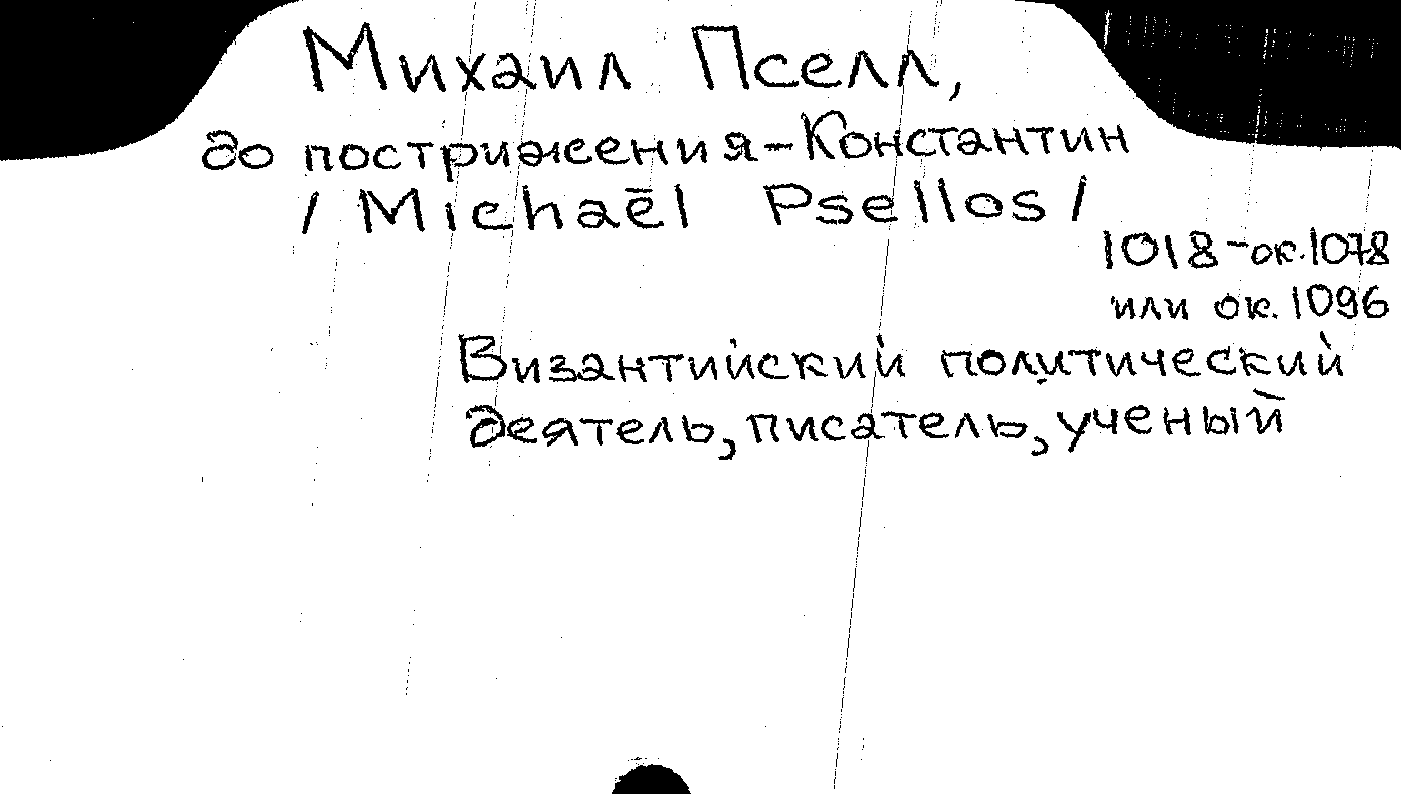 Михаил Пселл,
до пострижения-Константин
/Michaēl Psellos/
1018-ок.1078
или ок.1096
Византийский политический
деятель, писатель, ученый